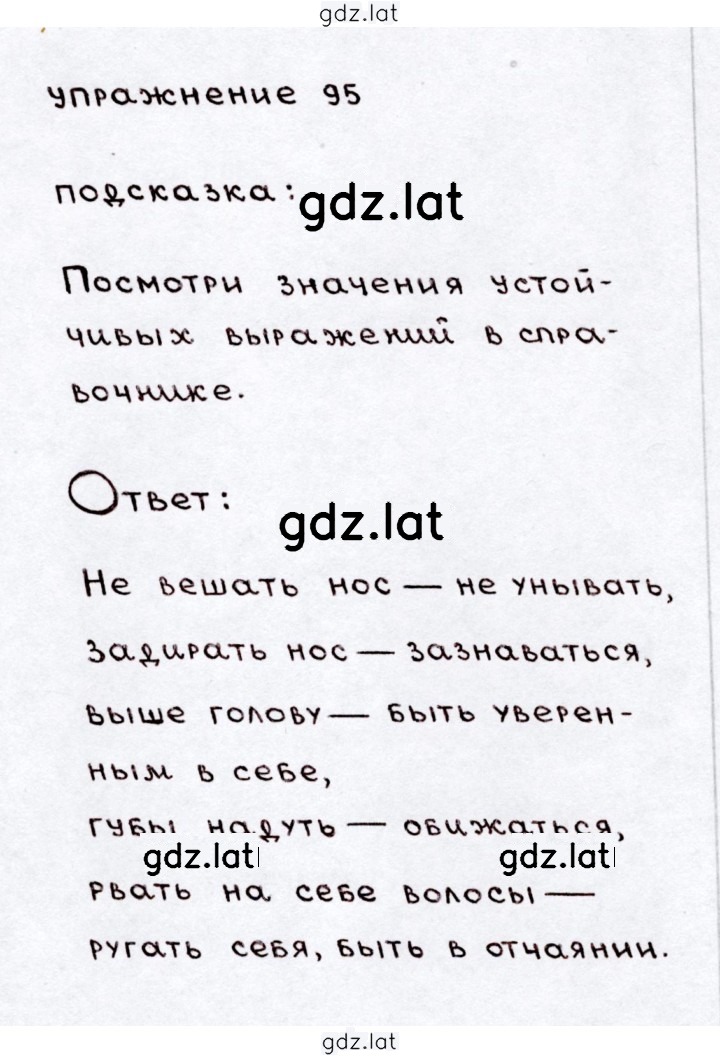 gdz.lat
упражнение 95
подсказка:
gdz.lat
Посмотри значения устой-
чивых выражений в спра-
вочнике.
Ответ:
gdz.lat
Не вешать нос — не унывать,
задирать нос — зазнаваться,
выше голову — быть уверен-
ным в себе,
губы надуть — обижаться,
gdz.lat gdz.lat
рвать на себе волосы —
ругать себя, быть в отчаянии.
gdz.lat